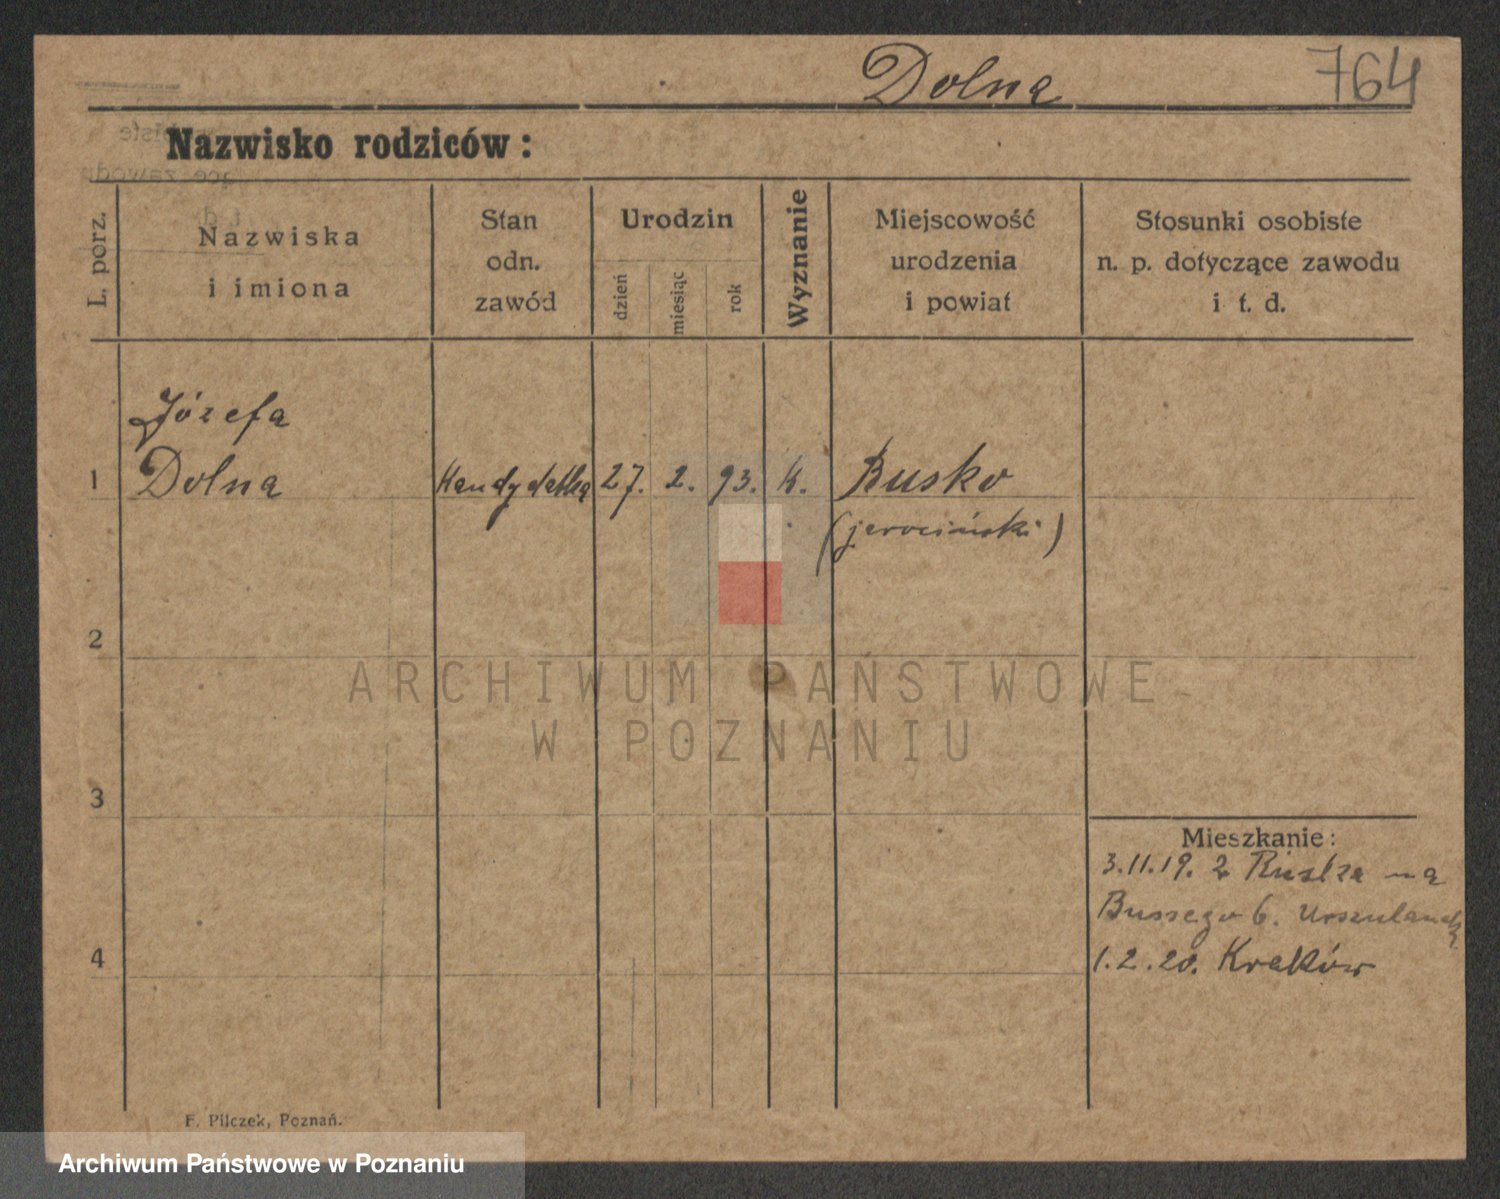 Dolna
764
Nazwisko rodziców:
L. porz.
Nazwiska
i imiona
Stan
odn.
zawód
Urodzin
dzień
miesiąc
rok
Wyznanie
Miejscowość
urodzenia
i powiat
Stosunki osobiste
n. p. dotyczące zawodu
i t. d.
Józefa
1 Dolna Kandydatka 27. 2. 93. K. Busko
(jarociński)
2
ARCHIWUM PAŃSTWOWE
W POZNANIU
3
Mieszkanie:
3.11.19. z na
Bussego 6.
4
1.2.20. Kraków
F. Pilczek, Poznań.
Archiwum Państwowe w Poznaniu